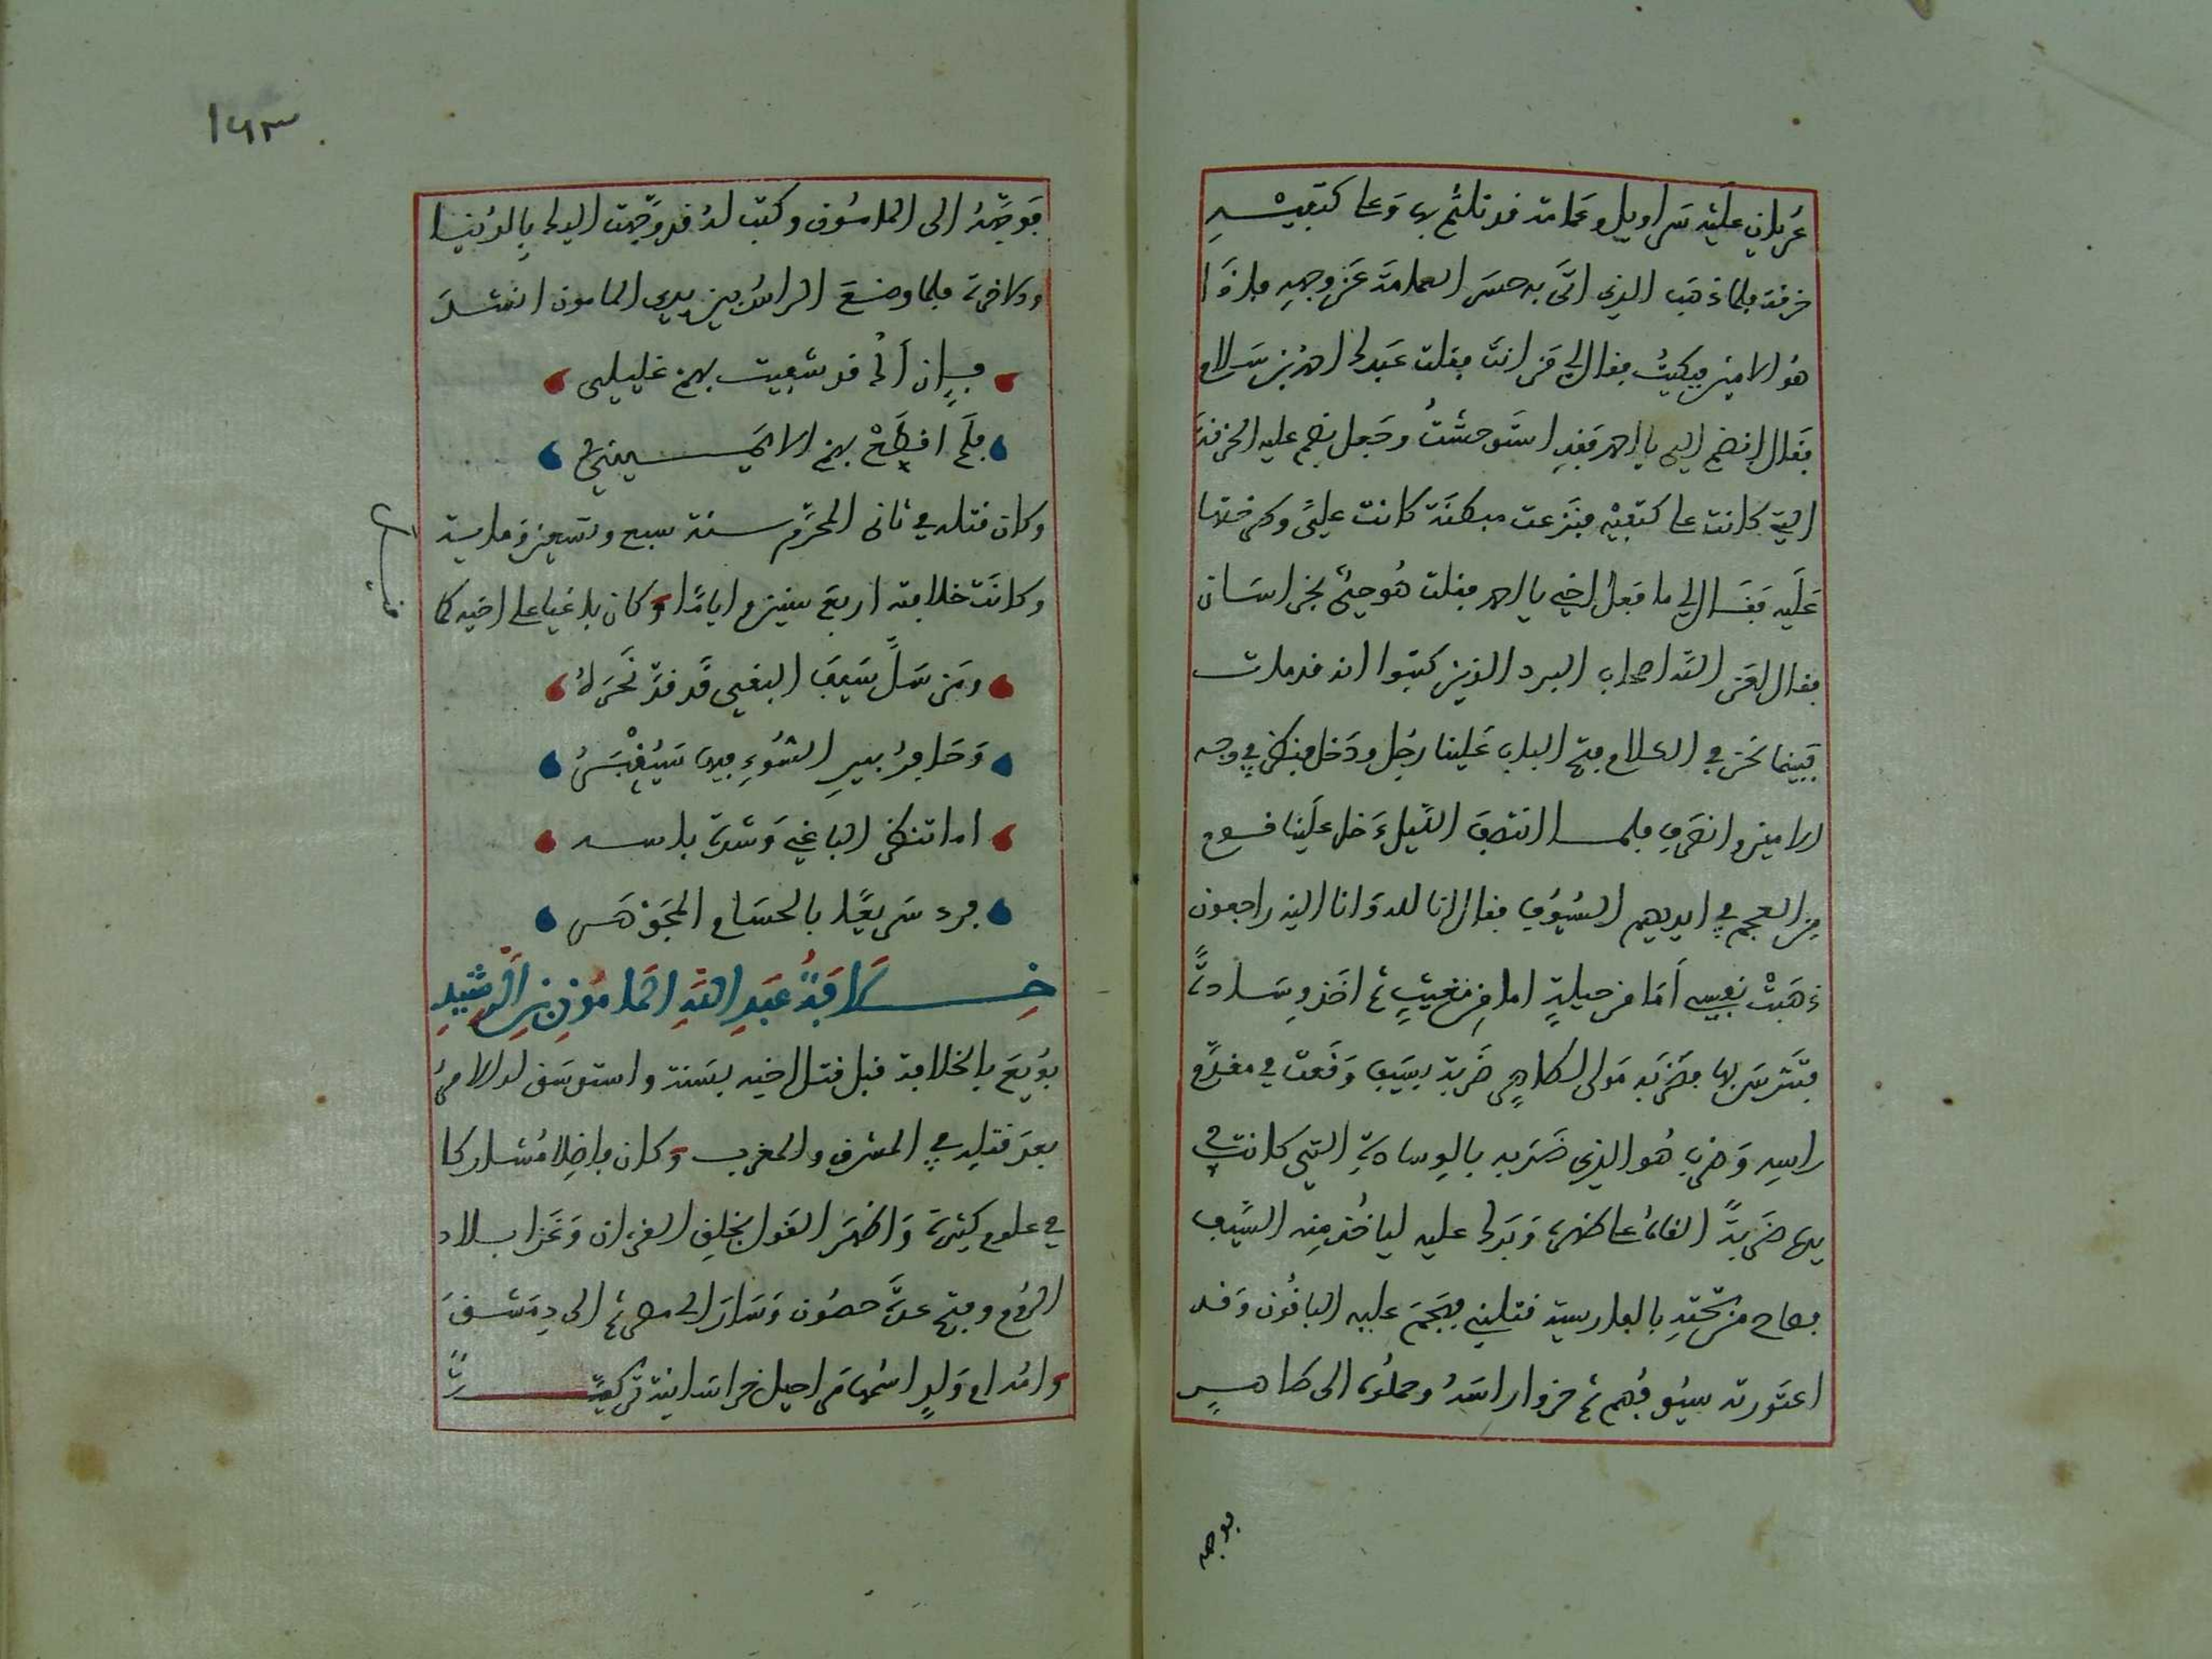 عُريانٍ عليْه سَراويل وعمامة قد تلثّم بها وَعلى كتبَيْه
خرقة فلما ذهَب الذي اتَى به حسَر العمامَة عَن وجهه فإذَا
هوَ الامين فبكيتُ فقال لي مَن انتَ فقلت عَبدك احمد بن سَلام
فقال انضم الي يا احمد فقدِ استَوحشتُ وجَعل يضم عليه الخرقة
التي كانت على كتفَيْه فنَزعت مبطنَة كانت عليَّ وطرحتها
عَليه فقَال لي ما فَعل اخي يا احمد فقلت هُو حيٌّ بخراسَان
فقال لعَن الله اصحاب البرد الذين كتبوا انه قد مات
فبَينما نحن في الكلام فتح الباب عَلينا رجُل ودَخل فنظر في وجه
الامين وانصَرف فلمـا انتصَف اللّيل دَخل علَينا قـوم
من العجم في ايديهم السُّيوُف فقال انا لله وَانا اليه راجعون
ذهَبتْ نفسي أمَا من حيلةٍ اما من مغيثٍ ثم اخَذ وِسَادةً
فتَترسَ بها فضَربَه مَولى لطاهرٍ ضَربة بسَيف وَقَعت في مقدّم
راسِه وَضرب هُو الذي ضَربه بالوِسادَةِ التي كانت في
يدِه ضَربةً القاهُ على ظهره وَبَرك عليه ليأخُذ منه السَّيف
فصاح من تحتِهِ بالفارسية قتلني فهَجَمَ عليه الباقُون وَقد
اعتَورته سيُوفُهم ثم حزوا راسَهُ وحملُوه الى طاهـرٍ
فوجه
١٦٣
فوَجّههُ الى المامُون وكتبَ لهُ قد وَجّهت اليك بِالدُّنيا
والاخرة فلما وضعَ الراسُ بين يدي المامون انشدَ
فـإن أكُ قد شفيت بهم غليلي
فلَم اقطَعْ بهم الا يمـيني
وكان قتله في ثاني المحرَّم سنة سبع وتسعين ومايـة
وكانَت خلافته اربعَ سنين وايامًا وكان باغيا على اخيه كما
ومَن سَلَّ سَيفَ البغيِ قَد قدّ نَحرَهُ
وَحَافِرُ بيرِ السُّوءِ فيها سَيُقْبَرُ
اما تنظر الباغي وَشدة باسـه
فرد سَريعًا بالحسَام المجَوْهَر
خِـلَافَةُ عَبدِ اللهِ المَامُونِ بنِ الرشِيدِ
بوُيعَ بالخلافة قبل قتل اخيه بسَنة واستوسَق له الامرُ
بعدَ قتلهِ في المشرق والمغرب وَكان فاضِلا مُشاركا
في علوم كثيرة وَاظهَر القوَل بخلقِ القرءان وَغَزا بـلاد
الروُم وفتح عدّةَ حصُون وَسَارَ الى مصر ثم الى دِمَشق
وامُه ام وَلدٍ اسمُها مَراجيل خراسَانية تركيـة